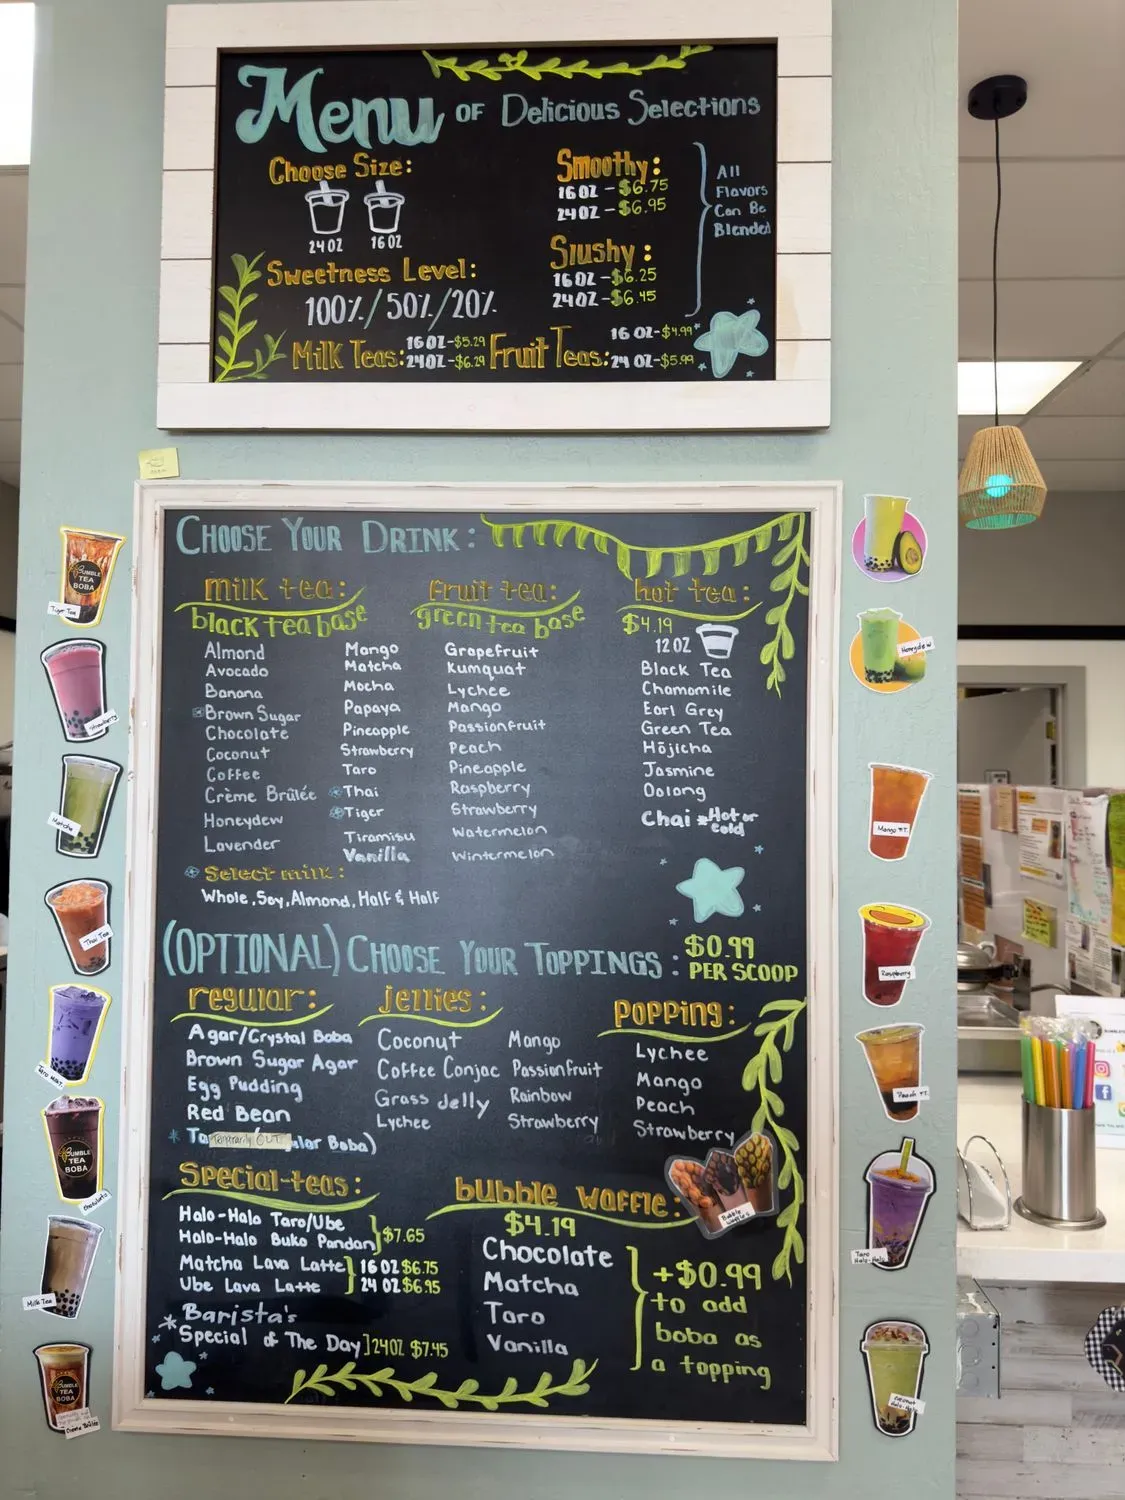 Menu OF Delicious Selections
Choose Size:
24 OZ 16 OZ
Sweetness Level:
100% / 50% / 20%
Milk Teas: 16 OZ - $5.29
24 OZ - $6.29
Smoothy:
16 OZ - $6.75
24 OZ - $6.95
Slushy:
16 OZ - $6.25
24 OZ - $6.45
All
Flavors
Can Be
Blended
Fruit Teas: 16 OZ - $4.99
24 OZ - $5.99
CHOOSE YOUR DRINK:
milk tea:
black tea base
Almond
Avocado
Banana
Brown Sugar
Chocolate
Coconut
Coffee
Crème Brûlée
Honeydew
Lavender
Mango
Matcha
Mocha
Papaya
Pineapple
Strawberry
Taro
Thai
Tiger
Tiramisu
Vanilla
Select milk:
Whole, Soy, Almond, Half & Half
fruit tea:
green tea base
Grapefruit
Kumquat
Lychee
Mango
Passionfruit
Peach
Pineapple
Raspberry
Strawberry
Watermelon
Wintermelon
hot tea:
$4.19
12 OZ
Black Tea
Chamomile
Earl Grey
Green Tea
Hōjicha
Jasmine
Oolong
Chai Hot or
cold
(OPTIONAL) CHOOSE YOUR TOPPINGS: $0.99
PER SCOOP
regular:
Agar/Crystal Boba
Brown Sugar Agar
Egg Pudding
Red Bean
Temporarily OUT Boba)
jellies:
Coconut
Coffee Conjac
Grass Jelly
Lychee
Mango
Passionfruit
Rainbow
Strawberry
POPPING:
Lychee
Mango
Peach
Strawberry
Special-teas:
Halo-Halo Taro/Ube
Halo-Halo Buko Pandan } $7.65
Matcha Lava Latte } 16 OZ $6.75
Ube Lava Latte 24 OZ $6.95
Barista's
Special of The Day ] 24OZ $7.45
bubble waffle:
$4.19
Chocolate
Matcha
Taro
Vanilla
+$0.99
to add
boba as
a topping
Bubble
Waffles
BUMBLE
TEA
BOBA
Tiger Tea
Strawberry
Matcha
Thai Tea
Taro Milk T.
BUMBLE
TEA
BOBA
Chocolate
Milk Tea
BUMBLE
TEA
BOBA
Crème Brûlée
Honeydew
Mango F.T.
Raspberry
Peach F.T.
Taro
Halo-Halo